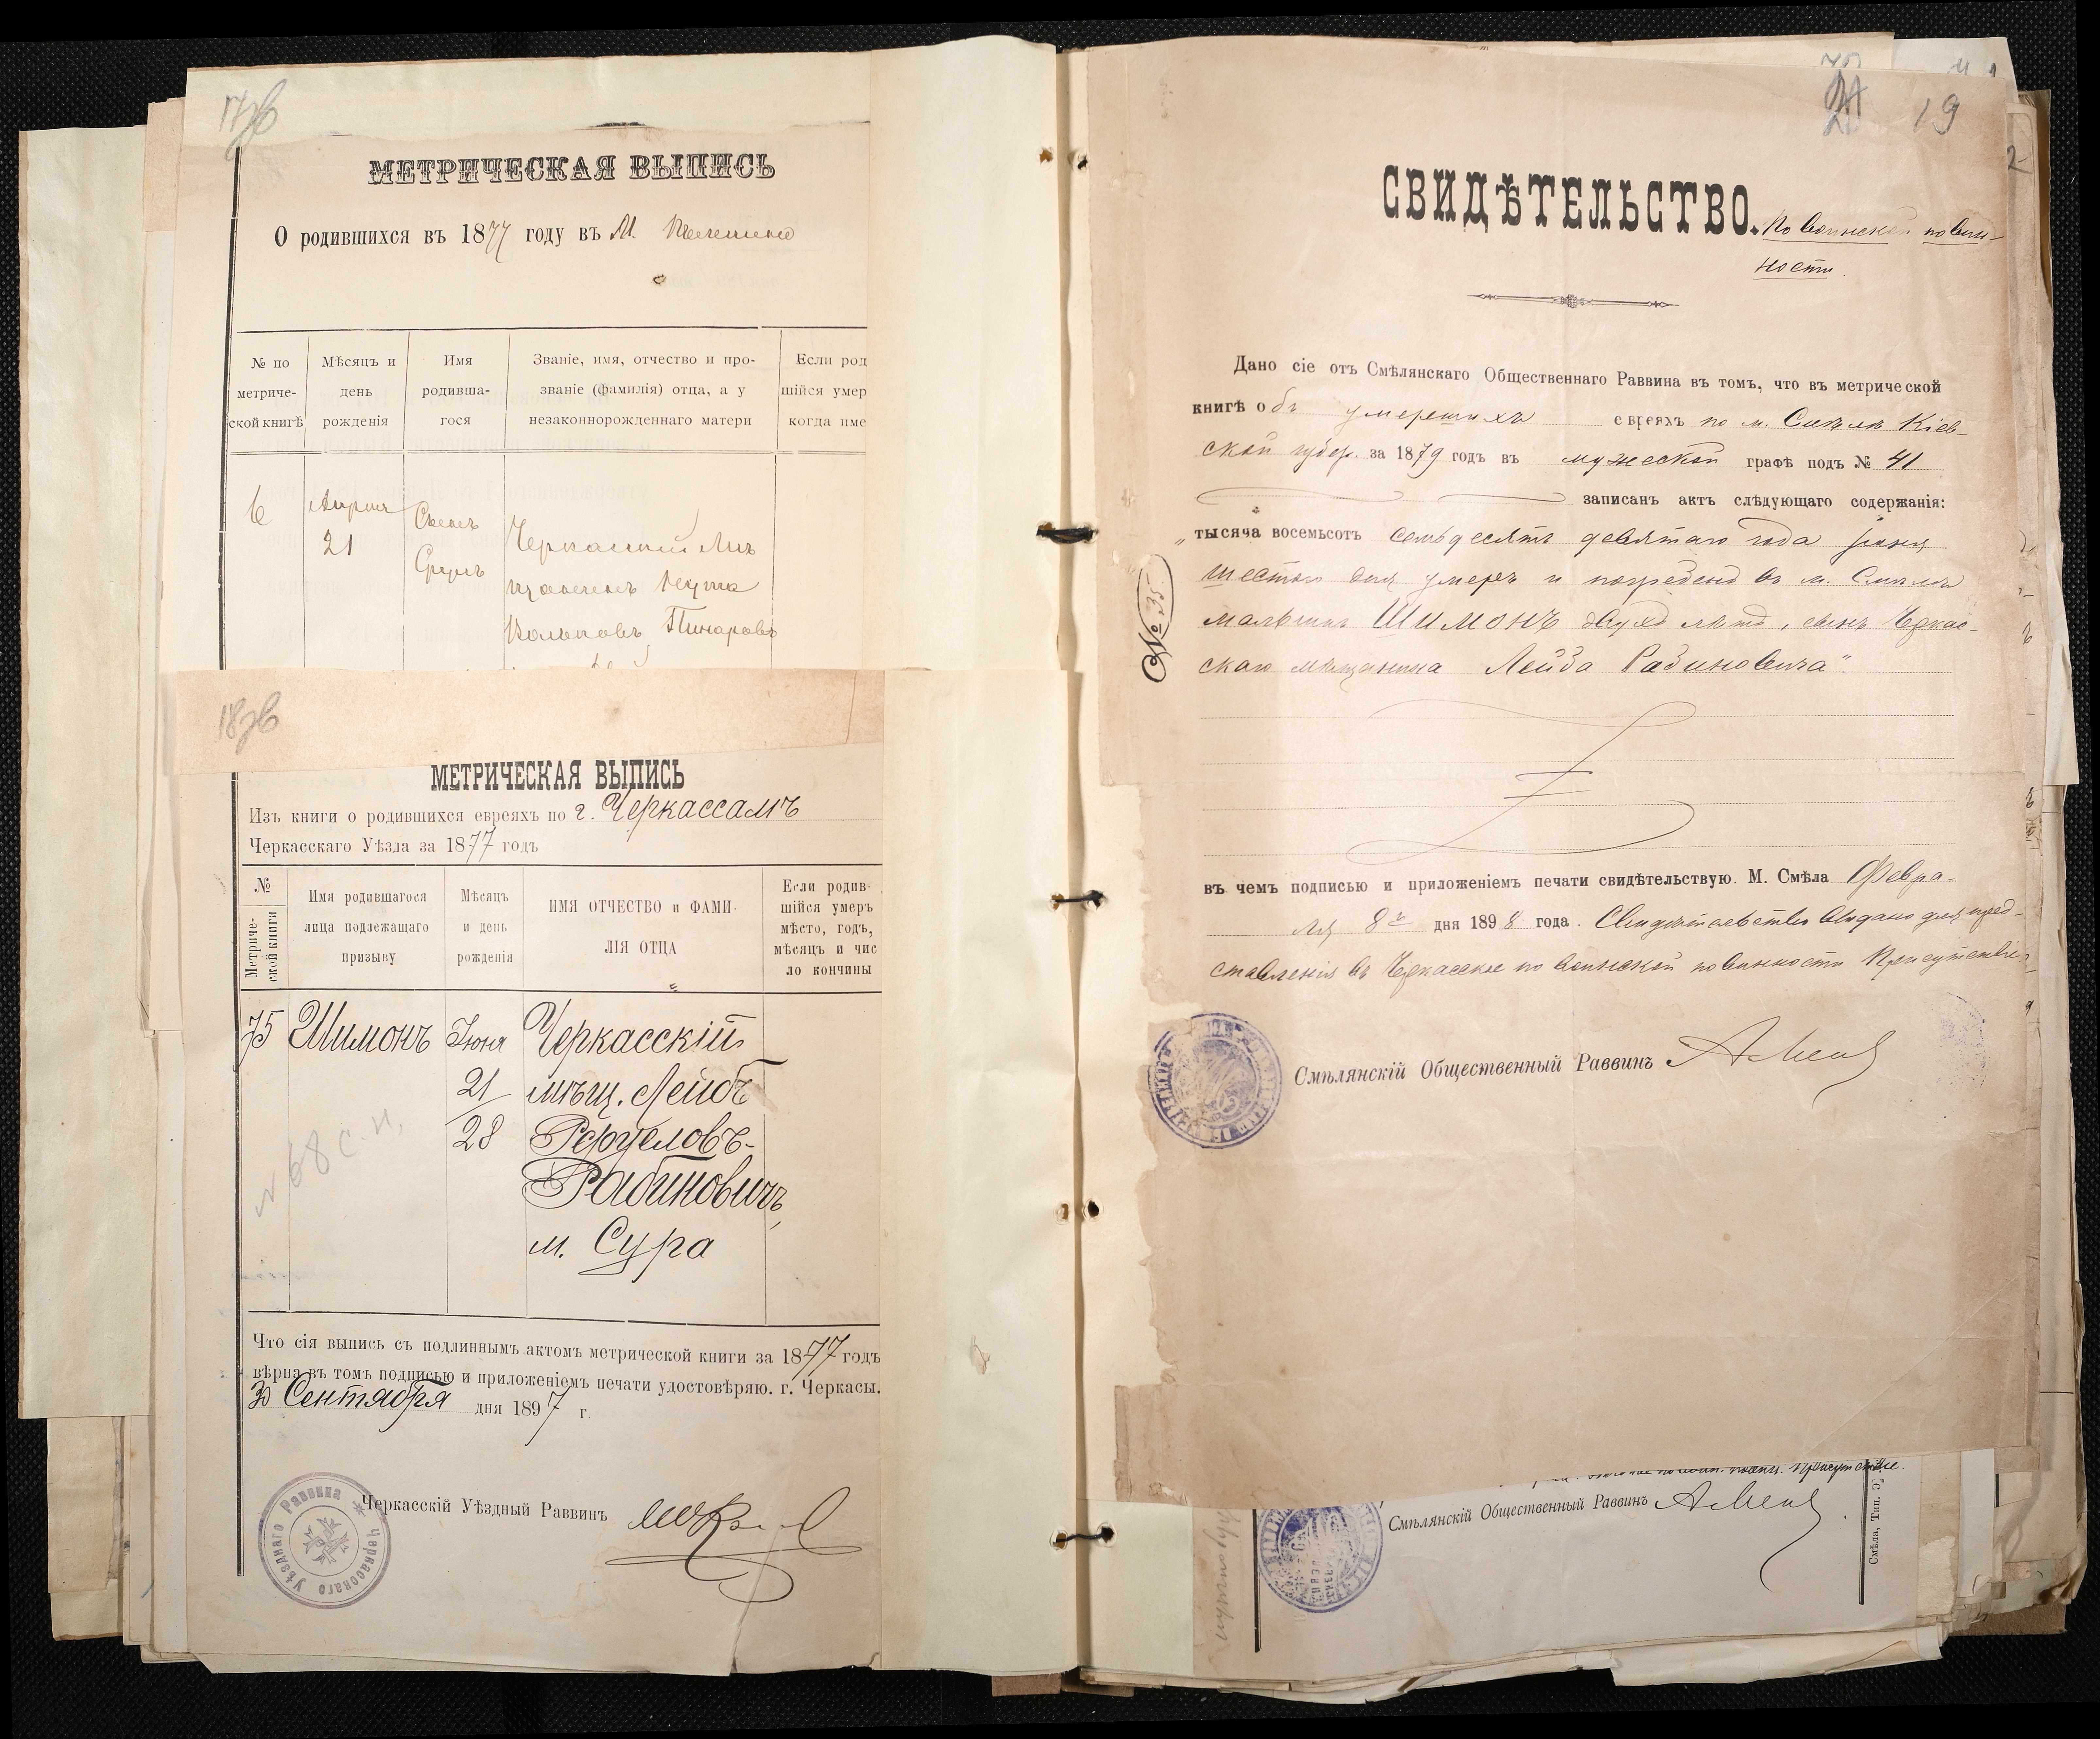 МЕТРИЧЕСКАЯ ВЫПИСЬ
О родившихся въ 1877 году въ М.
№ по метриче-ской книгѣ
Мѣсяцъ и день рожденія
Имя родивша-гося
Званіе, имя, отчество и про-званіе (фамилія) отца, а у незаконнорожденнаго матери
Если род
шійся умер
когда име
6
21
Сруль
Черкасскій мѣ
щанинъ Нута
18
МЕТРИЧЕСКАЯ ВЫПИСЬ
Изъ книги о родившихся евреяхъ по г. Черкассамъ
Черкасскаго Уѣзда за 1877 годъ
№ Метриче-ской книги
Имя родившагося лица подлежащаго призыву
Мѣсяцъ и день рожденія
ИМЯ ОТЧЕСТВО и ФАМИ-ЛІЯ ОТЦА
Если родив-шійся умеръ мѣсто, годъ, мѣсяцъ и чис ло кончины
75 Шимонъ Іюня Черкасскій
21 мѣщ. Лейбъ
28 Рефуеловъ-
Рабиновичъ,
м. Сура
№ 68 с. н.
Что сія выпись съ подлиннымъ актомъ метрической книги за 1877 годъ
вѣрна въ томъ подписью и приложеніемъ печати удостовѣряю. г. Черкасы.
30 Сентября дня 1897 г.
Черкасскій Уѣздный Раввинъ
Черкасскаго Уѣзднаго Раввина
19
СВИДѢТЕЛЬСТВО. По воинской повин-
ности.
Дано сіе отъ Смѣлянскаго Общественнаго Раввина въ томъ, что въ метрической
книгѣ объ умершихъ евреяхъ по м. Смѣлѣ Кіев-
ской губер. за 1879 годъ въ мужеской графѣ подъ № 41
записанъ актъ слѣдующаго содержанія:
„тысяча восемьсотъ семьдесятъ девятаго года Іюня
шестого дня умеръ и погребенъ въ м. Смѣлѣ
мальчикъ Шимонъ двухъ лѣтъ, сынъ Черкас-
скаго мѣщанина Лейба Рабиновича“.
№ 35
въ чемъ подписью и приложеніемъ печати свидѣтельствую. М. Смѣла Февра-
ля 8 дня 1898 года. Свидѣтельство выдано для пред-
ставленія въ Черкасское по воинской повинности Присутствіе
Смѣлянскій Общественный Раввинъ
Присутствіе.
Смѣлянскій Общественный Раввинъ
Смѣла, Тип.